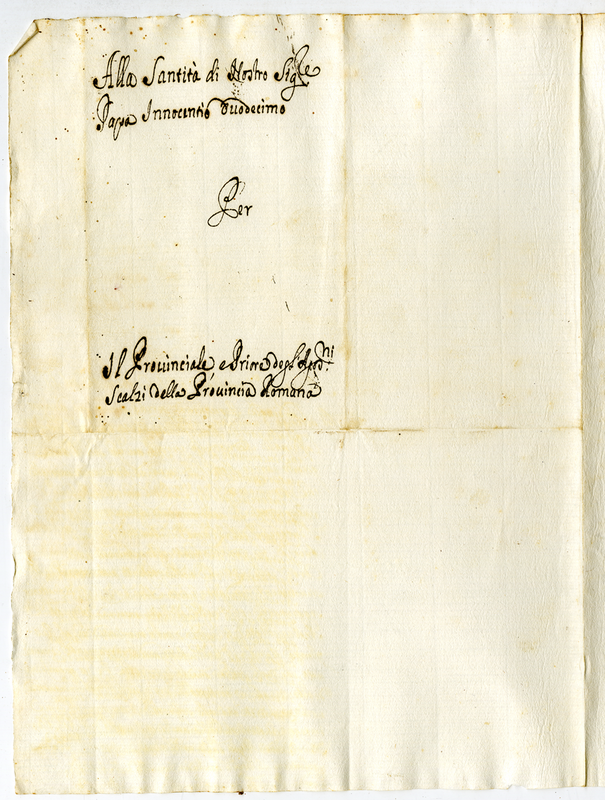 Alla Santità di Nostro Sig.re
Papa Innocentio Duodecimo
Per
Il Prouinciale e Priore degl' Agost.ni
Scalzi della Prouincia Romana